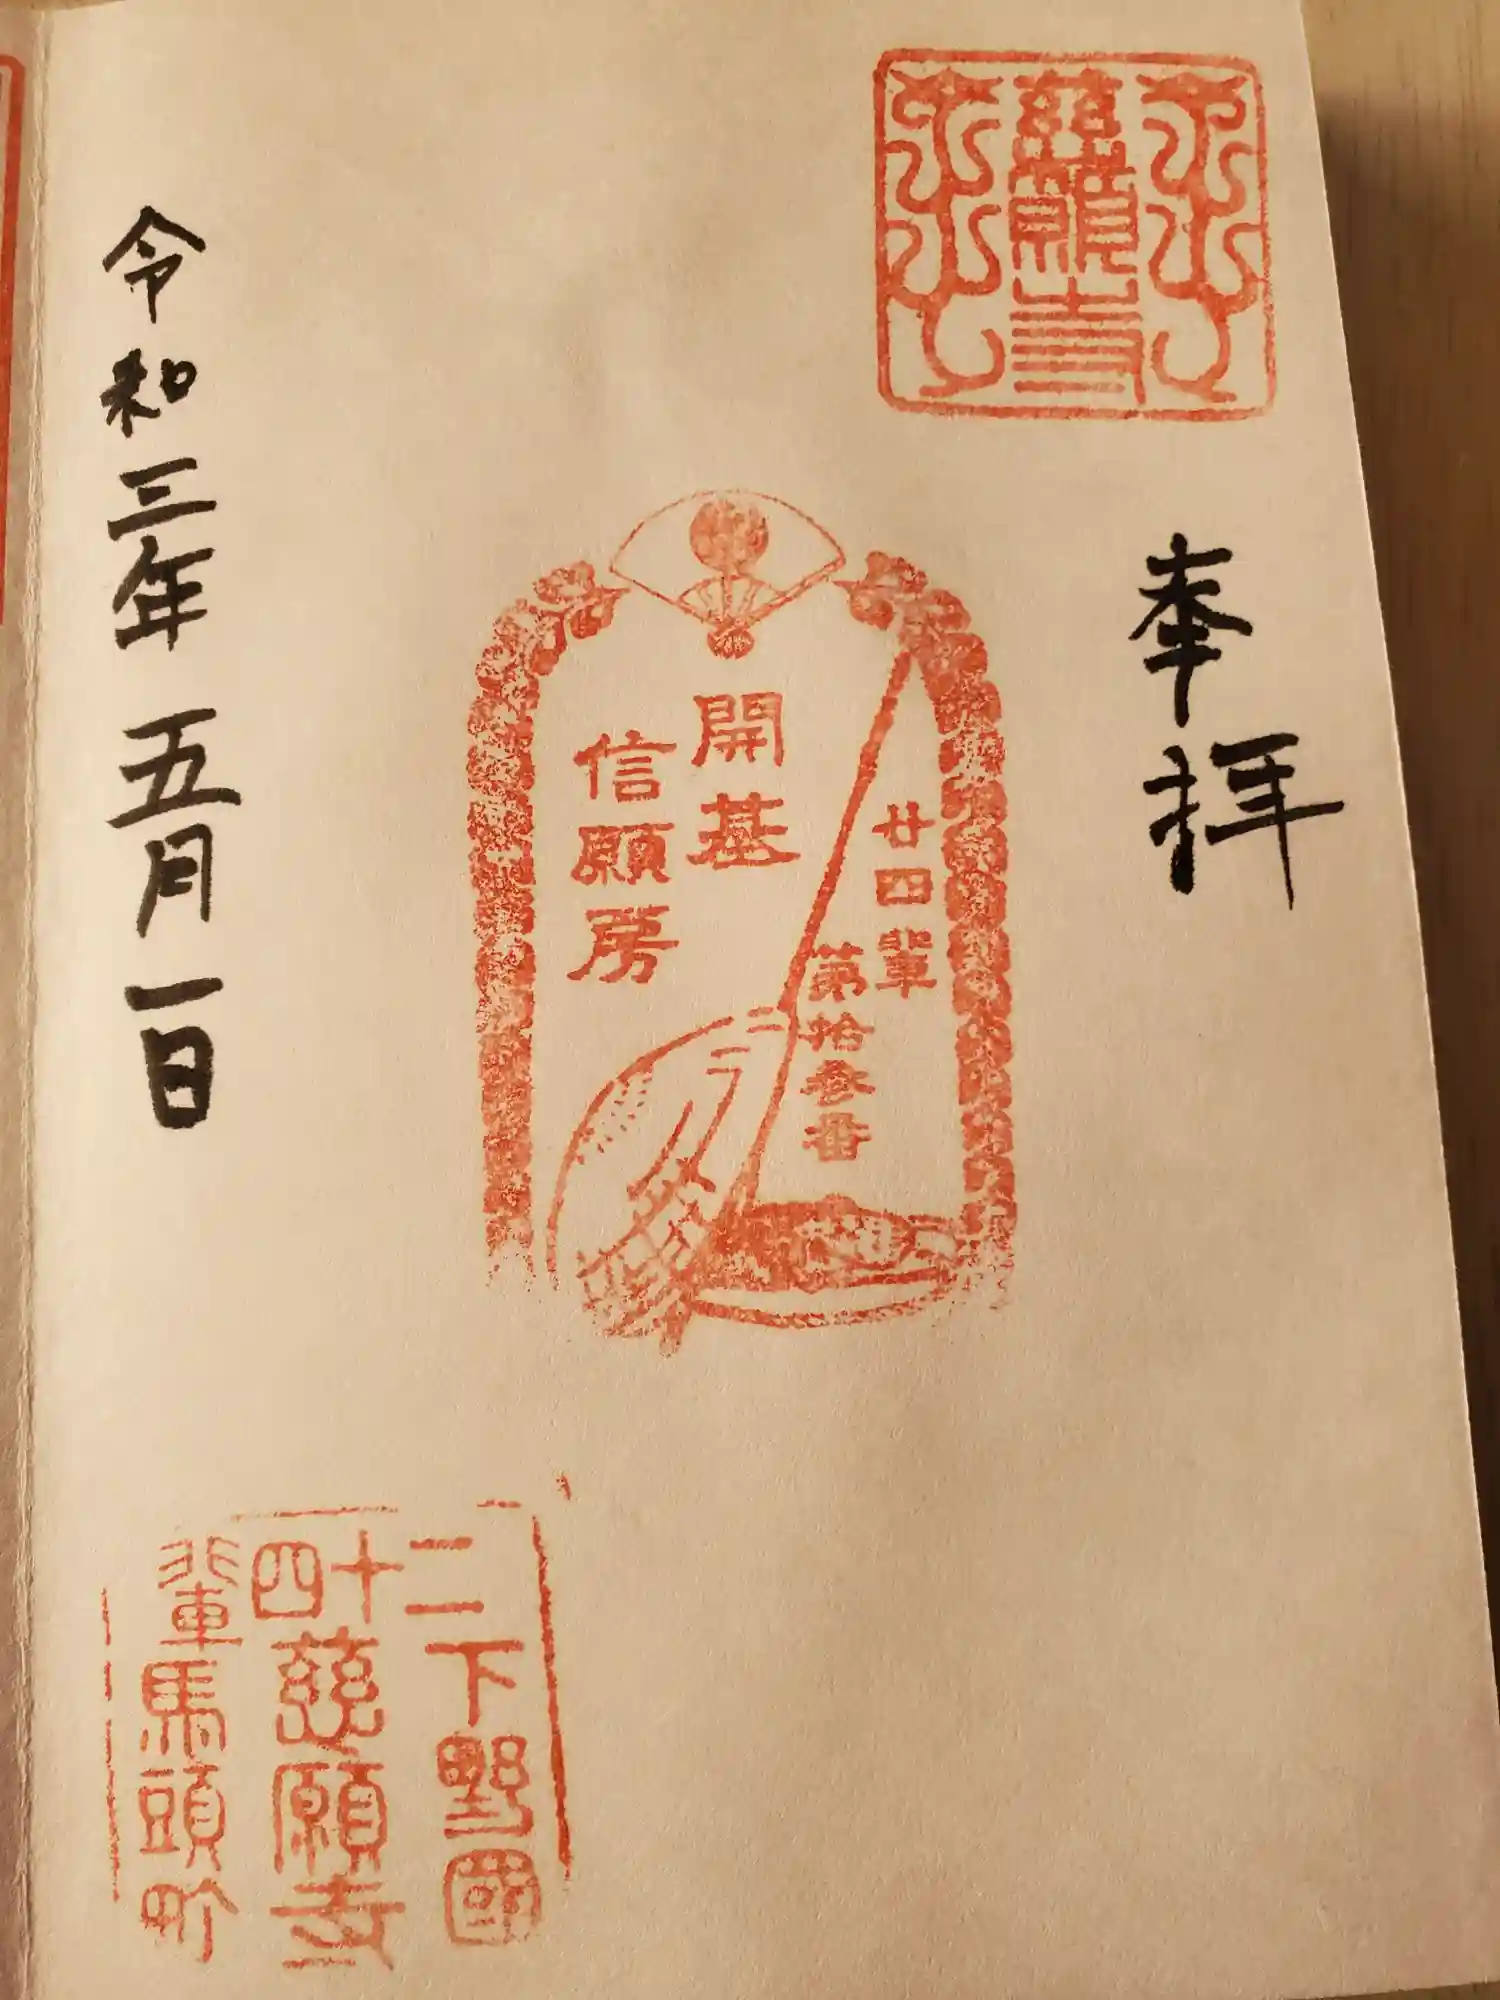 慈願寺
奉拝
廿四輩
第拾参番
開基
信願房
二十四輩
下野國
慈願寺
馬頭町
令和三年五月一日